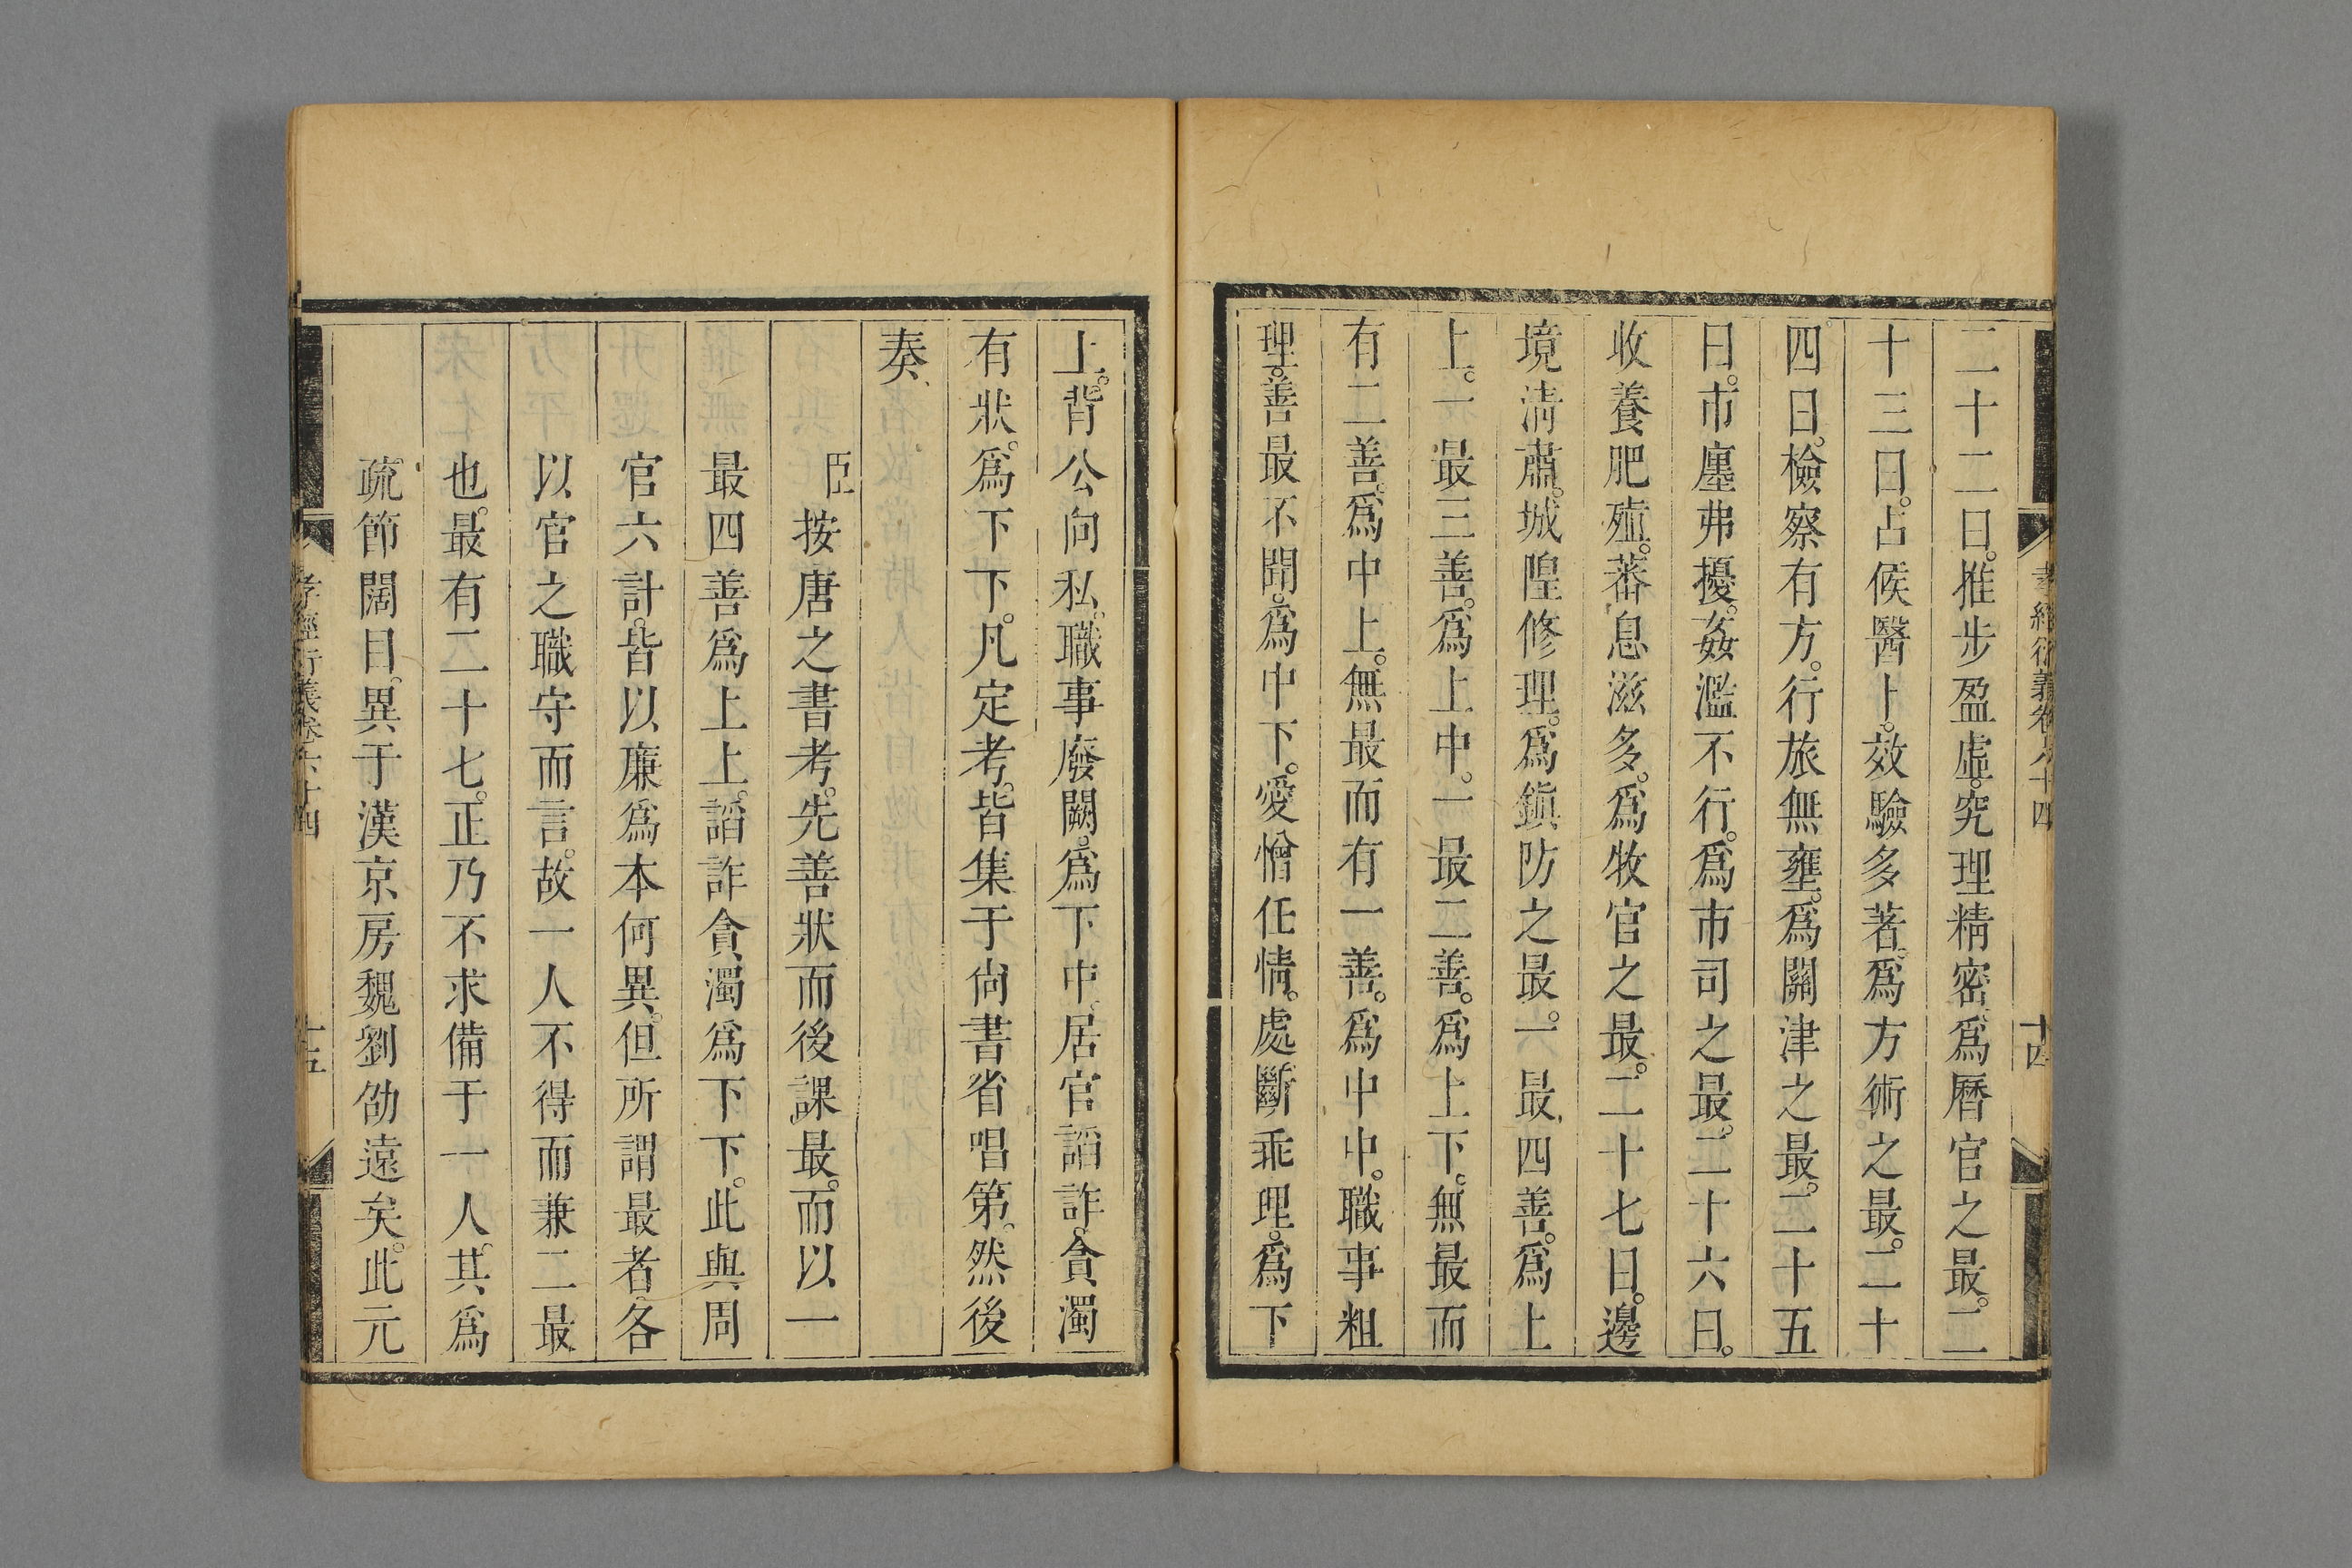 孝經衍義卷八十四
十四
二十二曰。推步盈虛。究理精密。爲曆官之最。二
十三曰。占候醫卜。效驗多著。爲方術之最。二十
四曰。檢察有方。行旅無壅。爲關津之最。二十五
曰。市廛弗擾。姦濫不行。爲市司之最。二十六曰。
收養肥殖。蕃息滋多。爲牧官之最。二十七曰。邊
境淸肅。城隍修理。爲鎭防之最。一最四善。爲上
上。一最三善。爲上中。一最二善。爲上下。無最而
有二善。爲中上。無最而有一善。爲中中。職事粗
理。善最不聞。爲中下。愛憎任情。處斷乖理。爲下
上。背公向私。職事廢闕。爲下中。居官諂詐。貪濁
有狀。爲下下。凡定考。皆集于尙書省唱第。然後
奏、
臣按唐之書考。先善狀而後課最。而以一
最四善爲上上。諂詐貪濁爲下下。此與周
官六計。皆以廉爲本何異。但所謂最者。各
以官之職守而言。故一人不得而兼二最
也。最有二十七。正乃不求備于一人。其爲
疏節闊目。異于漢京房魏劉劭遠矣。此元
孝經衍義卷八十四
十五